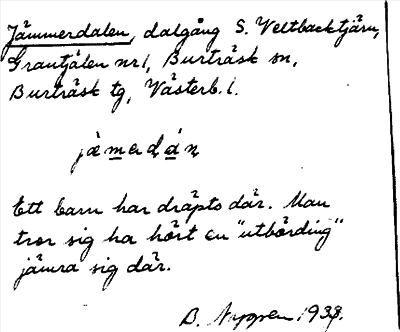 Jämmerdalen, dalgång S. Veltbacktjärn,
Grantjälen nr 1, Burträsk sn,
Burträsk tg, Västerb. l.
Ett barn har dräpts där. Man
tror sig ha hört en "utbörding"
jämra sig där.
B. Nygren 1939.